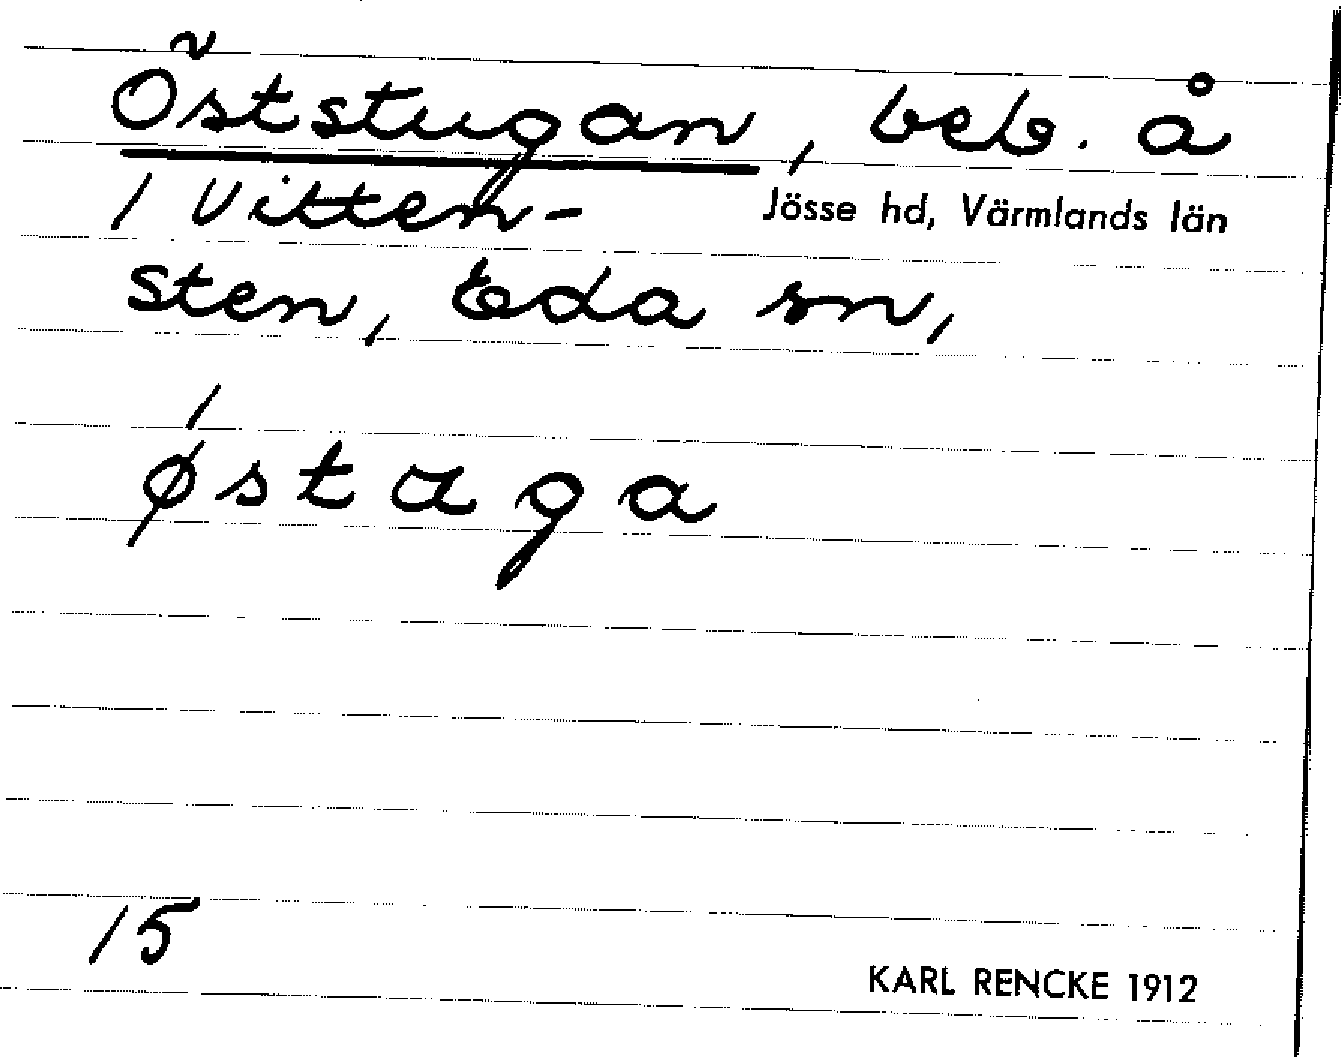 Öststugan, beb. å
1 Vitten-
Jösse hd, Värmlands län
sten, Eda sn,
ǿstaga
15
KARL RENCKE 1912